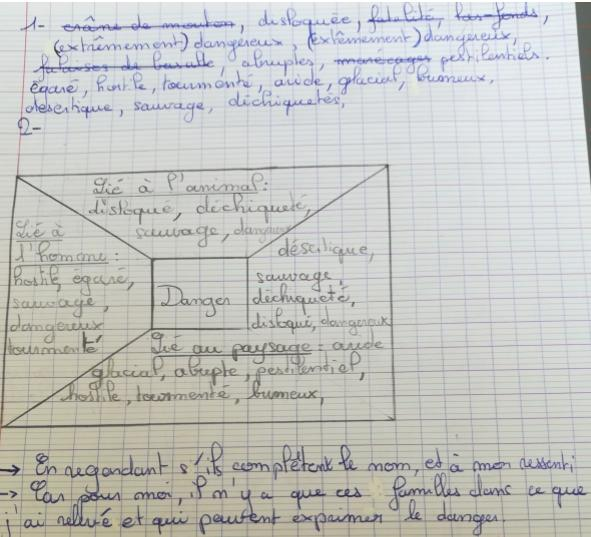 1- crâne de mouton, disloquée, fatalité, bas-fonds,
(extrêmement) dangereux, (extrêmement) dangereux,
falaises de basalte, abruptes, marécages pestilentiels.
égaré, hostile, tourmenté, aride, glacial, brumeux,
désertique, sauvage, déchiquetés,
2-
Lié à l'animal:
disloqué, déchiqueté,
sauvage, dangereux
Lié à
l'homme:
hostile, égaré,
sauvage,
dangereux
tourmenté
Danger
désertique,
sauvage
déchiqueté,
disloqué, dangereux
Lié au paysage: aride
glacial, abrupte, pestilentiel,
hostile, tourmenté, brumeux,
→ En regardant s'ils complètent le nom, et à mon ressenti
-> Car pour moi, il n'y a que ces familles dans ce que
j'ai relevé et qui peuvent exprimer le danger.